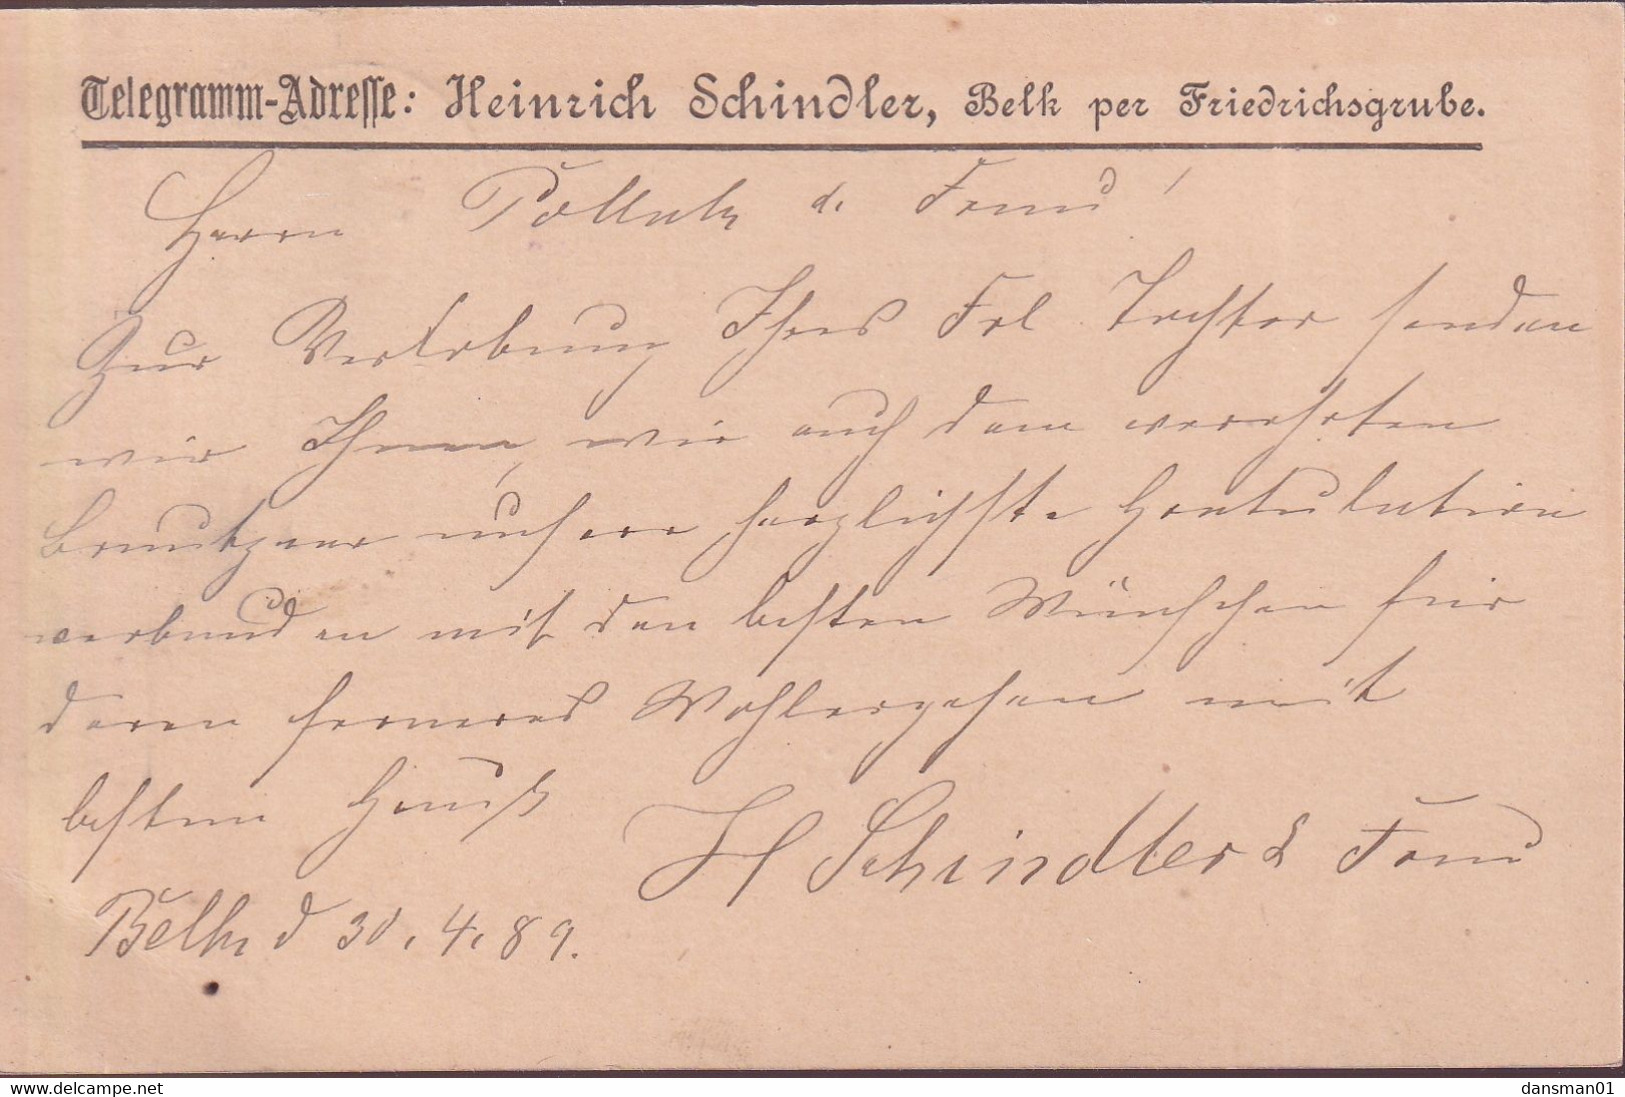 Telegramm-Adresse: Heinrich Schindler, Belk per Friedrichsgrube.
Herrn Pollack & Frau!
Zur Verlobung Ihres Frl Tochter senden
wir Ihnen, wie auch dem verehrten
Brautpaar unsere herzlichste Gratulation
verbunden mit den besten Wünschen für
deren ferneres Wohlergehen mit
bestem Gruß
H Schindler & Frau
Belk d 30. 4. 89.
www.delcampe.net
dansman01